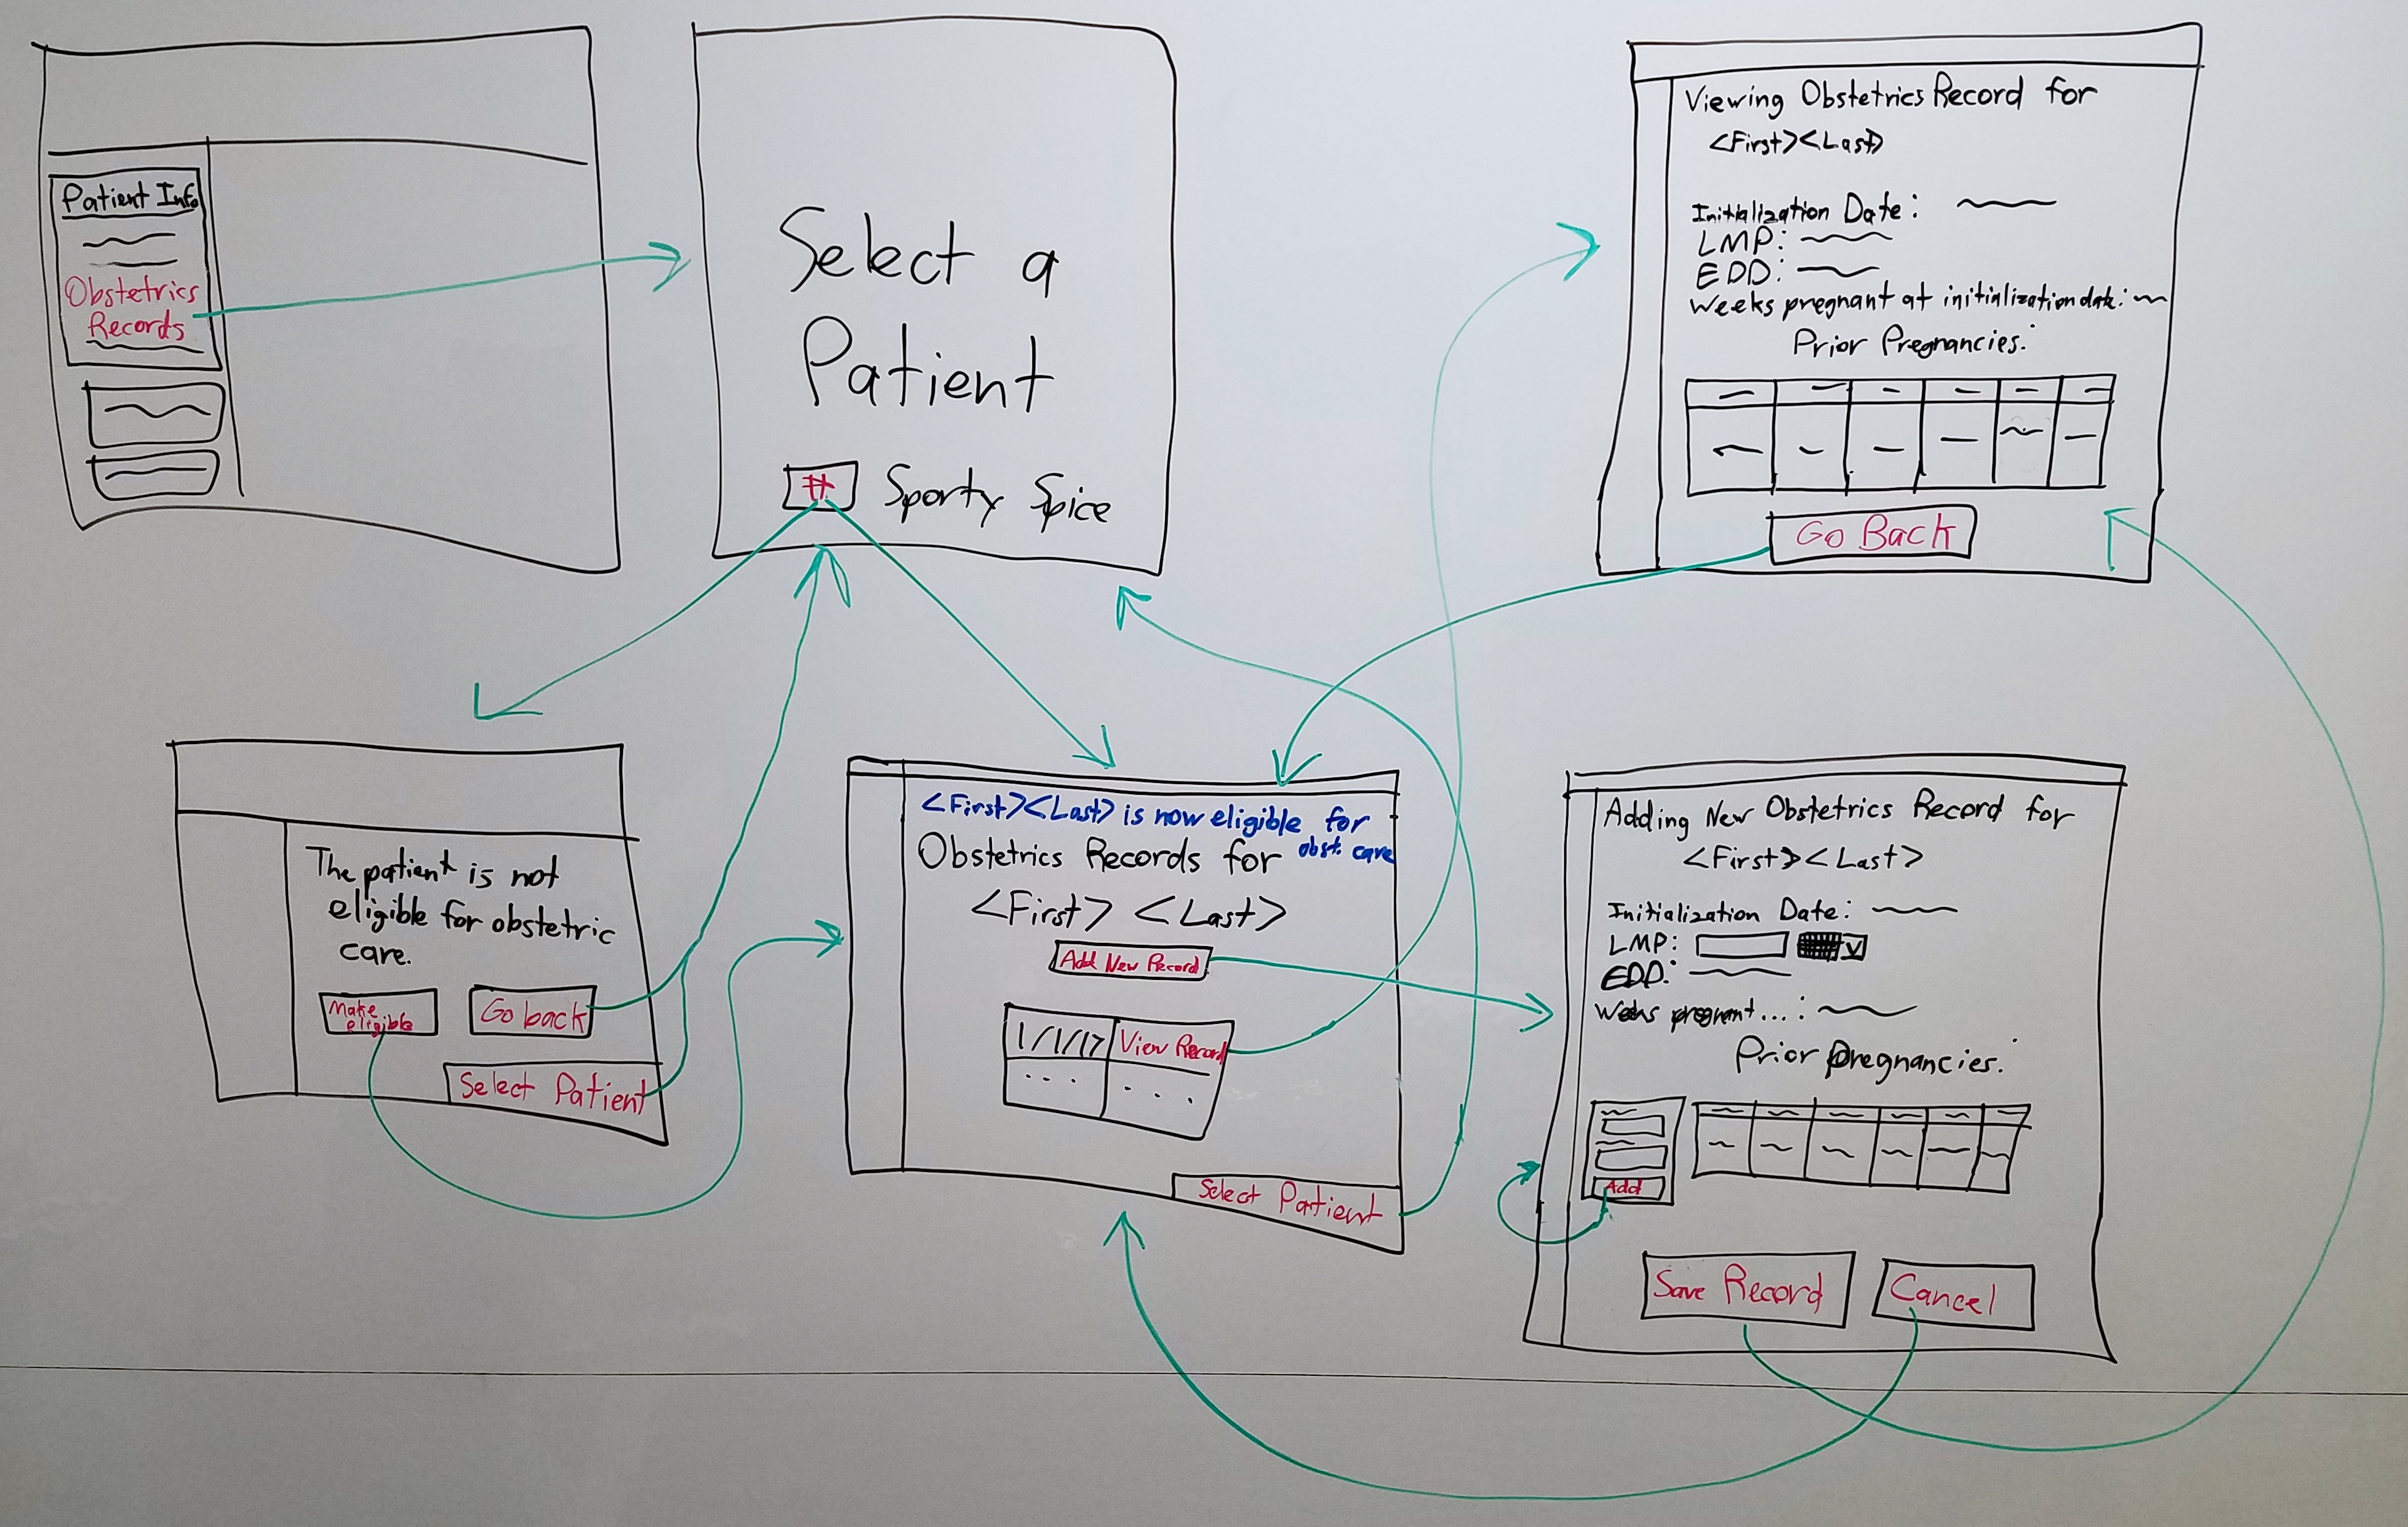 Patient Info
Obstetrics
Records
Select a
Patient
# Sporty Spice
Viewing Obstetrics Record for
<First><Last>
Initialization Date:
LMP:
EDD:
Weeks pregnant at initialization date:
Prior Pregnancies:
Go Back
The patient is not
eligible for obstetric
care.
Make
eligible
Go back
Select Patient
<First><Last> is now eligible for
obst. care
Obstetrics Records for
<First> <Last>
Add New Record
1/1/17 View Record
... ...
Select Patient
Adding New Obstetrics Record for
<First><Last>
Initialization Date:
LMP:
EDD:
Weeks pregnant...:
Prior pregnancies:
Add
Save Record
Cancel